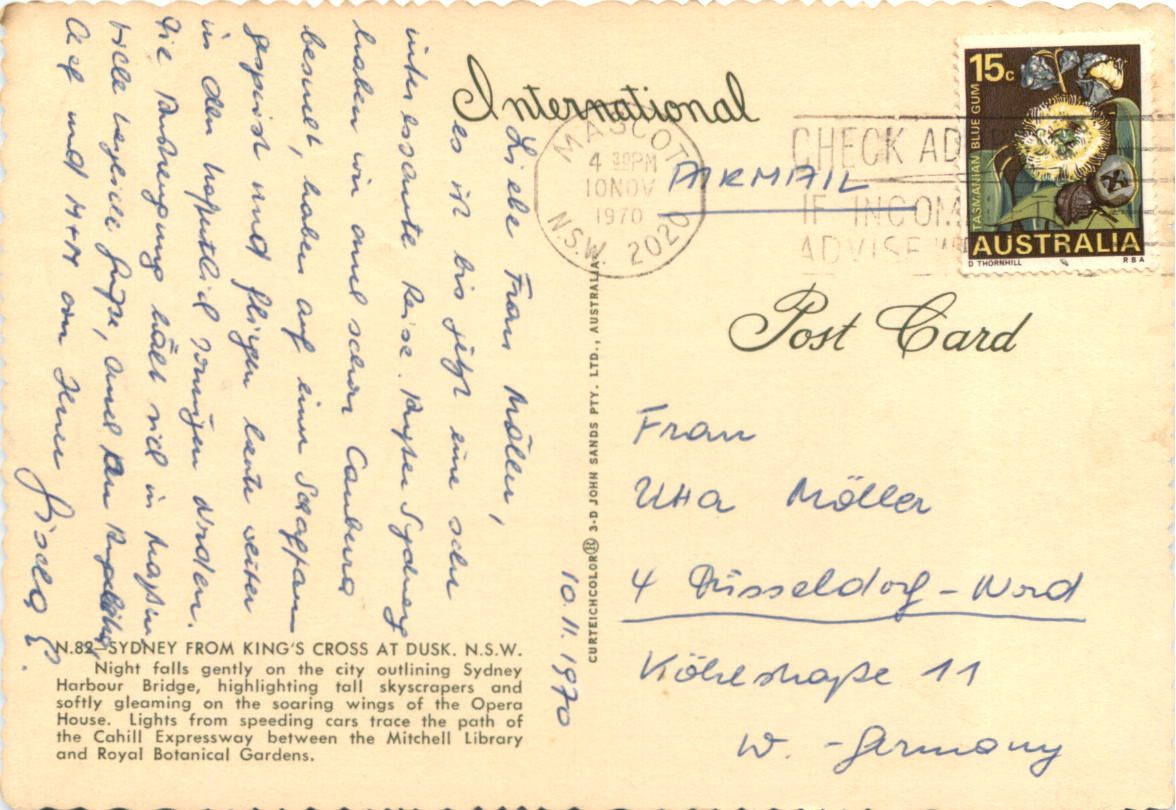 International
MASCOTT
4 30PM
10 NOV
1970
N.S.W. 2020
AIRMAIL
CHECK AD
IF INCOM
ADVISE
15c
TASMANIAN BLUE GUM
AUSTRALIA
D THORNHILL RBA
Post Card
10.11.1970
Liebe Frau Möller,
es ist bis jetzt eine sehr
interessante Reise. Außer Sydney
haben wir auch schon Canberra
besucht, haben auf einer Schaffarm
gespeist und fliegen heute weiter
in den hoffentlich sonnigen Norden.
Die Anstrengung hält sich in Maßen
viele herzliche Grüße, auch an
und M+M von Ihrer
Gisela E.
CURTEICHCOLOR® 3-D JOHN SANDS PTY. LTD., AUSTRALIA
Frau
Utta Möller
4 Düsseldorf-Nord
Köhlstraße 11
W.-Germany
N.82-SYDNEY FROM KING'S CROSS AT DUSK. N.S.W.
Night falls gently on the city outlining Sydney
Harbour Bridge, highlighting tall skyscrapers and
softly gleaming on the soaring wings of the Opera
House. Lights from speeding cars trace the path of
the Cahill Expressway between the Mitchell Library
and Royal Botanical Gardens.